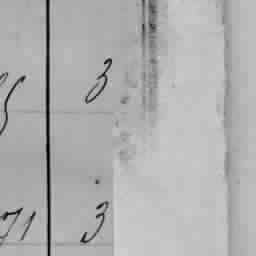 5 3
71 3